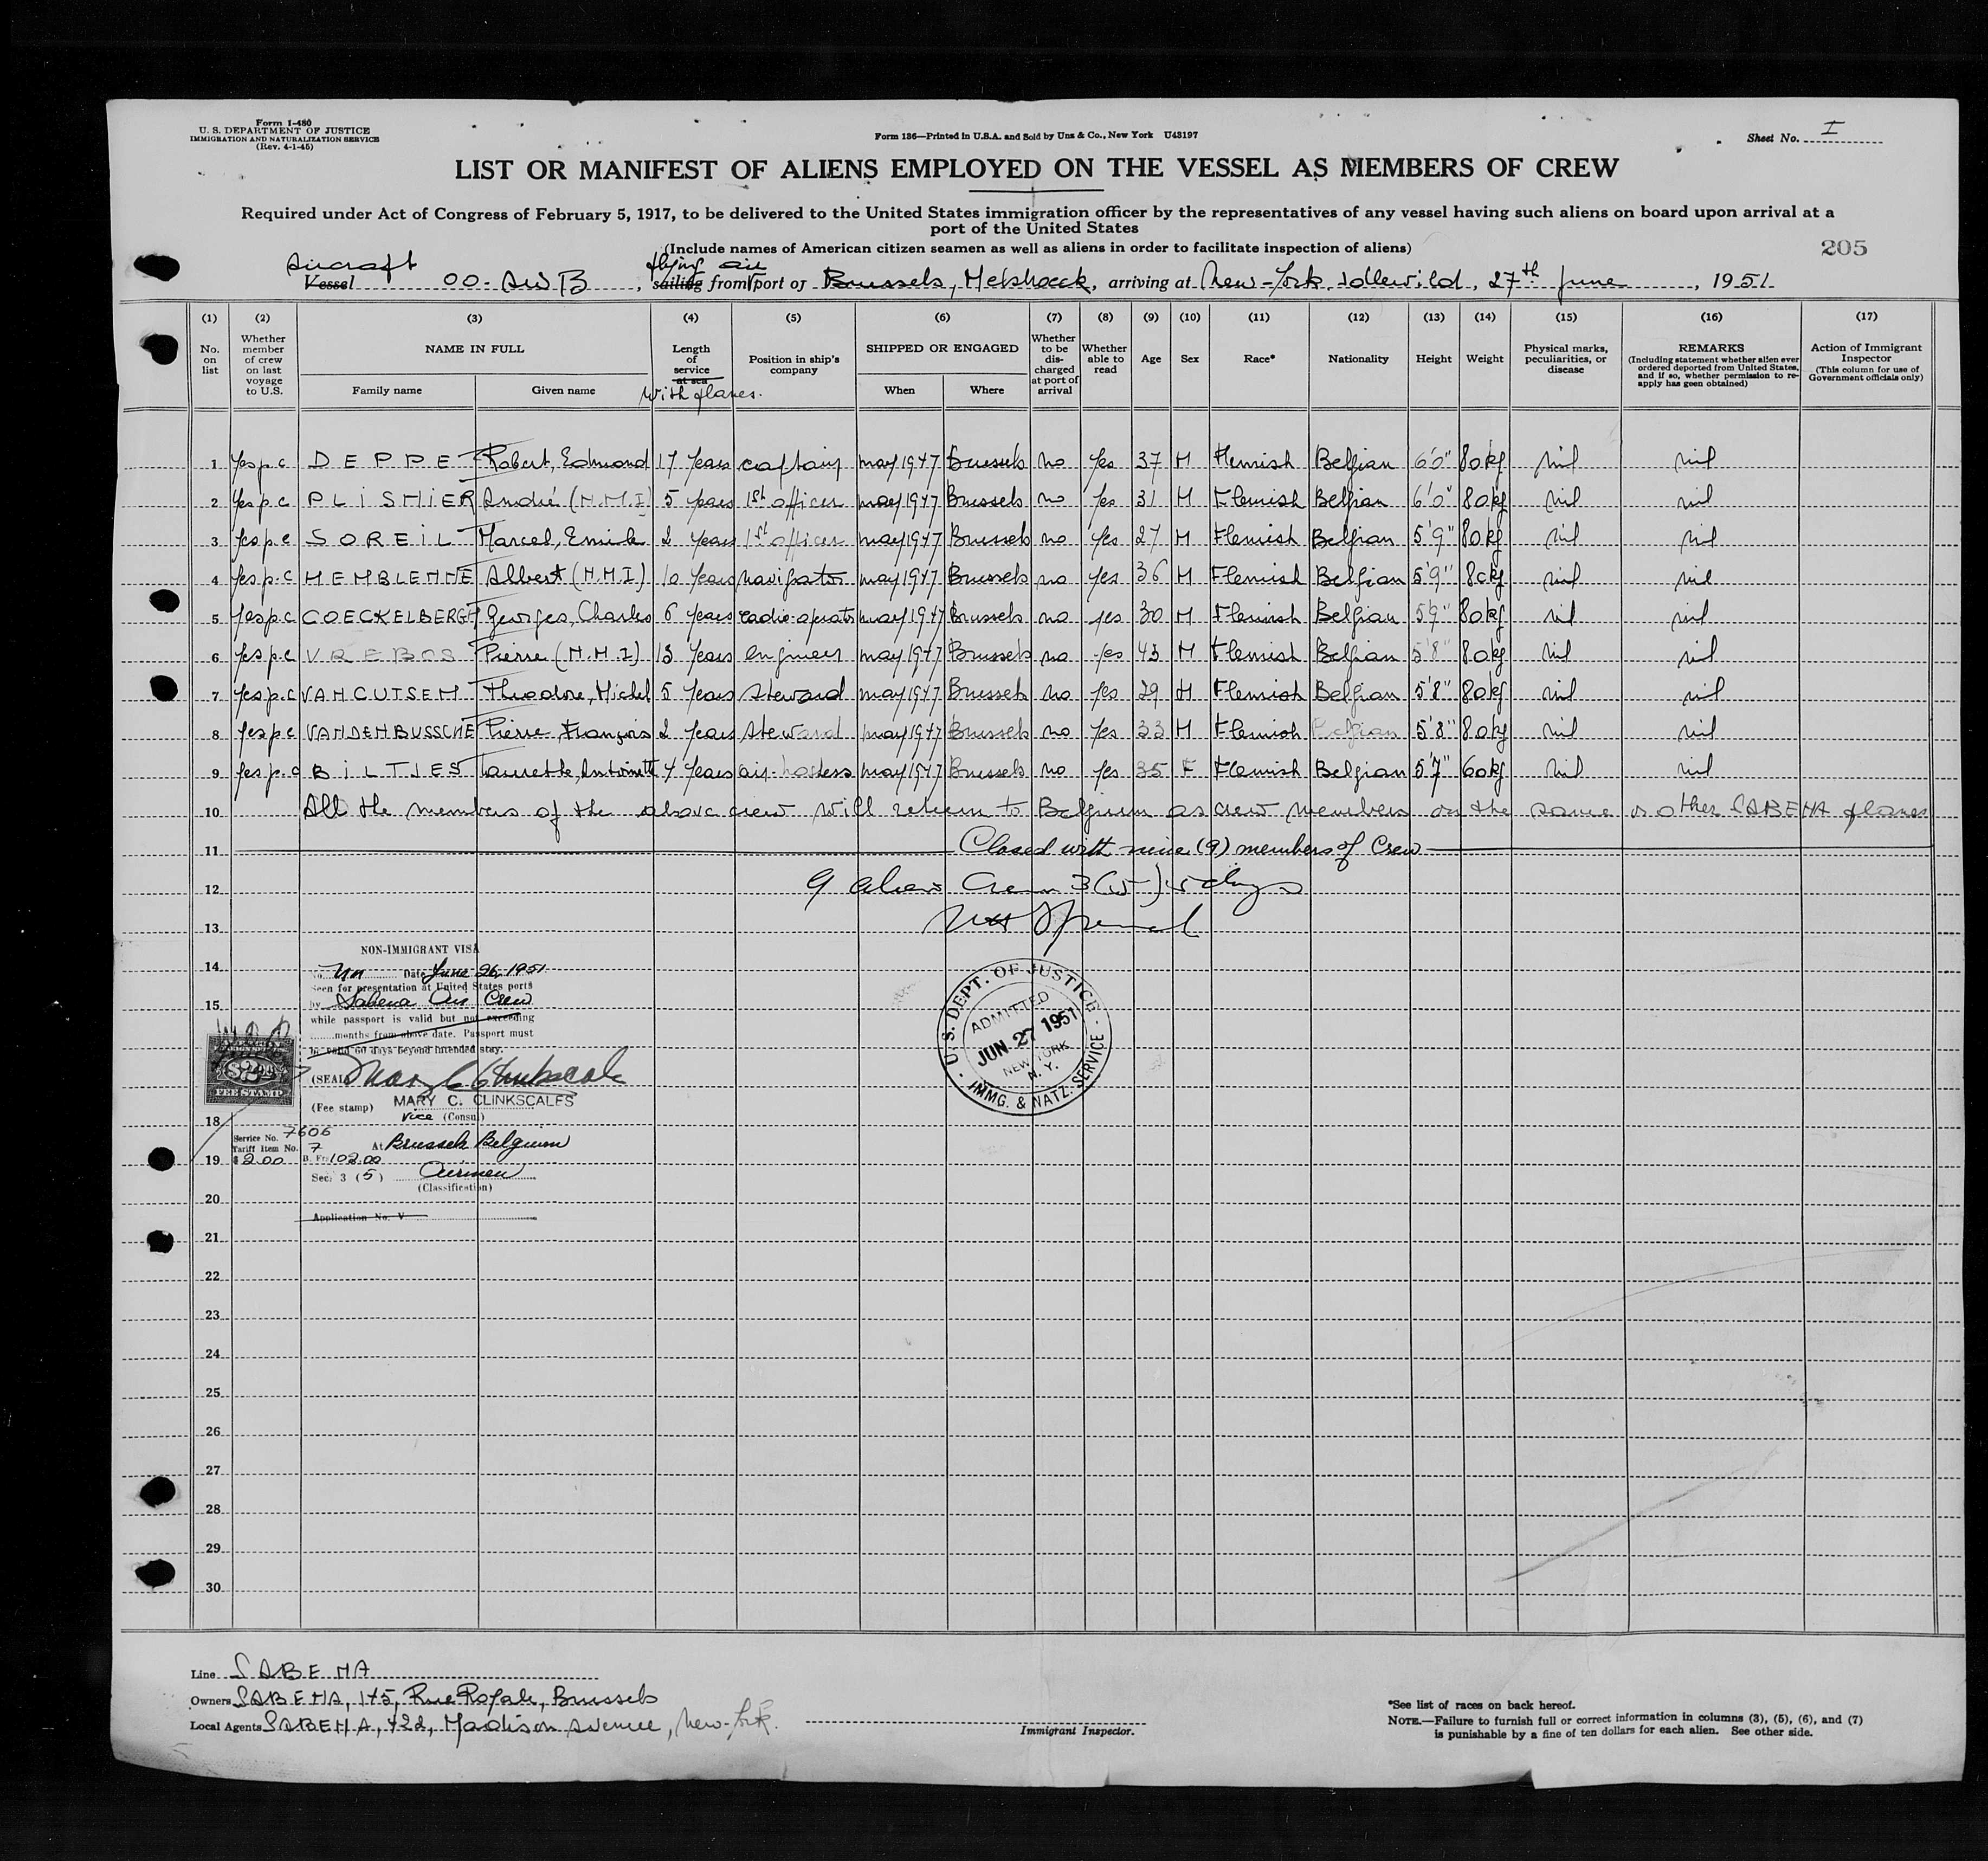 Form I-480
U. S. DEPARTMENT OF JUSTICE
IMMIGRATION AND NATURALIZATION SERVICE
(Rev. 4-1-45)
Form 136—Printed in U.S.A. and Sold by Unz & Co., New York U43197
Sheet No. I
LIST OR MANIFEST OF ALIENS EMPLOYED ON THE VESSEL AS MEMBERS OF CREW
Required under Act of Congress of February 5, 1917, to be delivered to the United States immigration officer by the representatives of any vessel having such aliens on board upon arrival at a
port of the United States
(Include names of American citizen seamen as well as aliens in order to facilitate inspection of aliens)
205
Aircraft flying air
Vessel OO-AWB, sailing from port of Brussels, Melsbroeck, arriving at New-York, Idlewild, 27th June, 1951
(1) (2) (3) (4) (5) (6) (7) (8) (9) (10) (11) (12) (13) (14) (15) (16) (17)
No. on list
Whether member of crew on last voyage to U.S.
NAME IN FULL
Family name
Given name
Length of service at sea
With planes.
Position in ship's company
SHIPPED OR ENGAGED
When
Where
Whether to be discharged at port of arrival
Whether able to read
Age
Sex
Race*
Nationality
Height
Weight
Physical marks, peculiarities, or disease
REMARKS
(Including statement whether alien ever ordered deported from United States, and if so, whether permission to re-apply has been obtained)
Action of Immigrant Inspector
(This column for use of Government officials only)
1 Yes p.c DEPPE Robert, Edmond 17 Years captain may 1947 Brussels no Yes 37 M Flemish Belgian 6'0" 80kg nil nil
2 Yes p.c PLISNIER André (N.M.I) 5 years 1st officer may 1947 Brussels no Yes 31 M Flemish Belgian 6'0" 80kg nil nil
3 Yes p.c SOREIL Marcel, Emile 2 Years 1st officer may 1947 Brussels no Yes 27 M Flemish Belgian 5'9" 80kg nil nil
4 Yes p.c Albert (N.M.I) 10 Years navigator may 1947 Brussels no Yes 36 M Flemish Belgian 5'9" 80kg nil nil
5 Yes p.c COECKELBERGH Georges, Charles 6 Years radio-operator may 1947 Brussels no yes 30 M Flemish Belgian 5'9" 80kg nil nil
6 Yes p.c VREBOS Pierre (N.M.I) 13 Years engineer may 1947 Brussels no Yes 43 M Flemish Belgian 5'8" 80kg nil nil
7 Yes p.c VANCUTSEM Théodore, Michel 5 Years Steward may 1947 Brussels no Yes 29 M Flemish Belgian 5'8" 80kg nil nil
8 Yes p.c VANDENBUSSCHE Pierre, François 2 Years Steward may 1947 Brussels no Yes 33 M Flemish Belgian 5'8" 80kg nil nil
9 Yes p.c BILTJES Laurette, Antoinette 4 Years air-hostess may 1947 Brussels no Yes 35 F Flemish Belgian 5'7" 60kg nil nil
10 All the members of the above crew will return to Belgium as crew members on the same or other SABENA planes
11 Closed with nine (9) members of Crew
12 9 aliens Crew 3(5) days
13
14
15
NON-IMMIGRANT VISA
No. Date June 26, 1951
Seen for presentation at United States ports
by Sabena Air Crew
while passport is valid but not exceeding
months from above date. Passport must
be valid 60 days beyond intended stay.
(SEAL) Mary C Clinkscales
FEE STAMP
(Fee stamp) MARY C. CLINKSCALES
Vice (Consul)
18
Service No. 7606
Tariff Item No. 7 At Brussels Belgium
19 $ 2.00 B. Fr. 102.00
Sec. 3 (5) Airmen
(Classification)
Application No. V
U. S. DEPT. OF JUSTICE
ADMITTED
JUN 27 1951
NEW YORK
N. Y.
IMMG. & NATZ. SERVICE
20
21
22
23
24
25
26
27
28
29
30
Line SABENA
Owners SABENA, 145, Rue Royale, Brussels
Local Agents SABENA, 422, Madison Avenue, New-York.
Immigrant Inspector.
*See list of races on back hereof.
NOTE.—Failure to furnish full or correct information in columns (3), (5), (6), and (7)
is punishable by a fine of ten dollars for each alien. See other side.